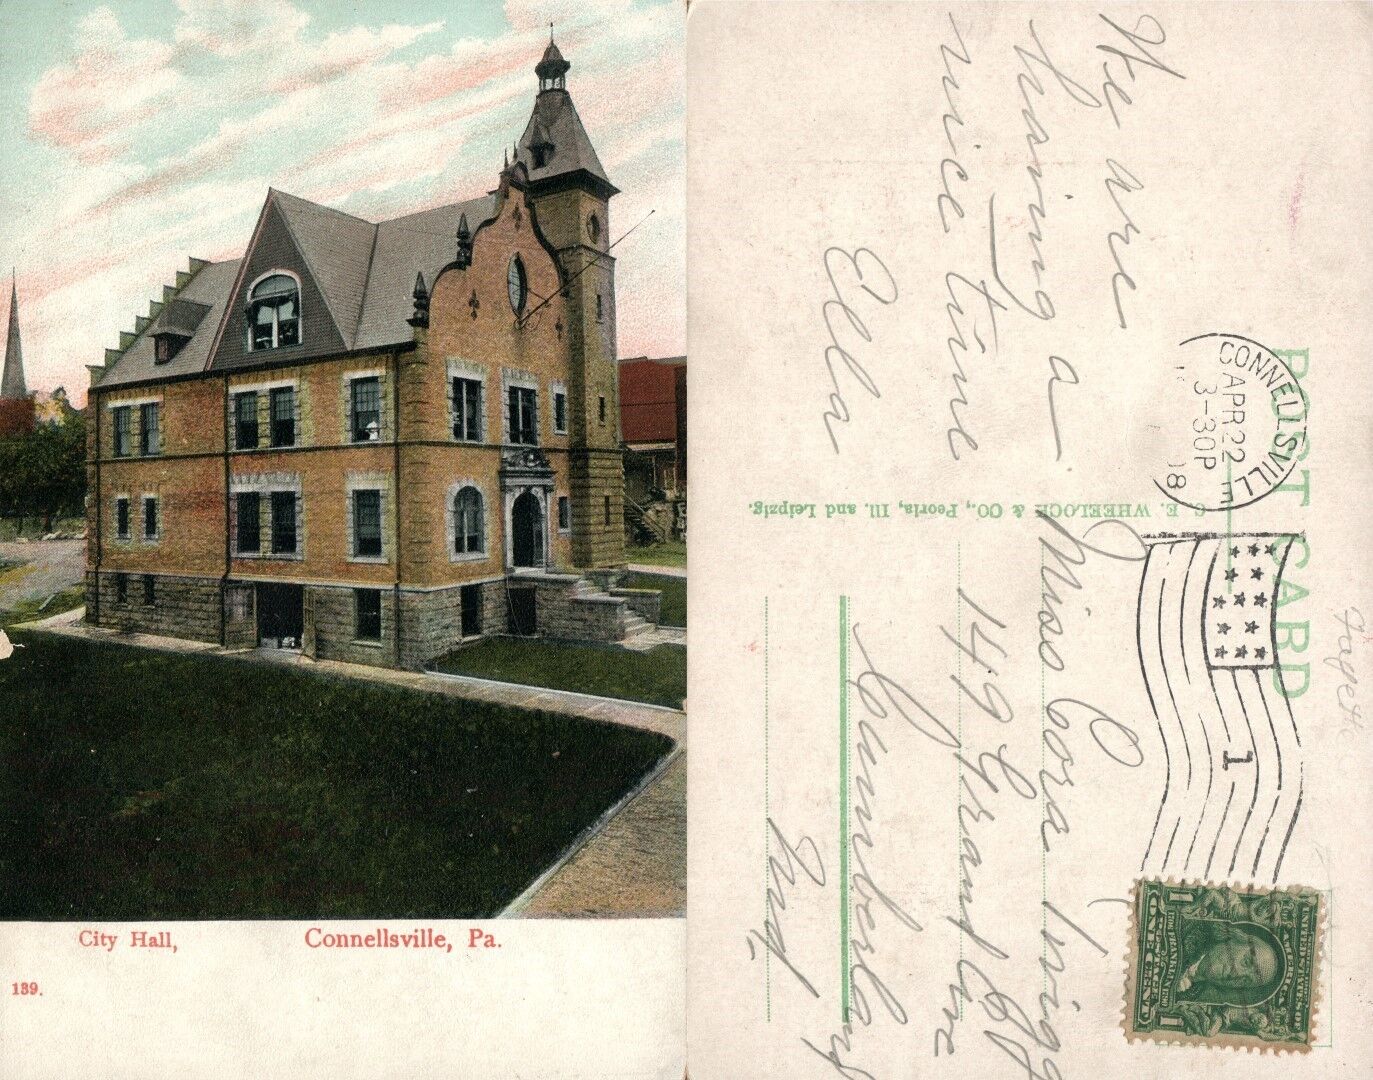 City Hall, Connellsville, Pa.
139.
POST CARD
CONNELLSVILLE
APR 22
3-30P
1
We are
having a
nice time
Ella
C. E. WHEELOCK & CO., Peoria, Ill. and Leipzig.
Miss Cora Twigg
149 Grand Ave
Cumberland
Md.
Fayette